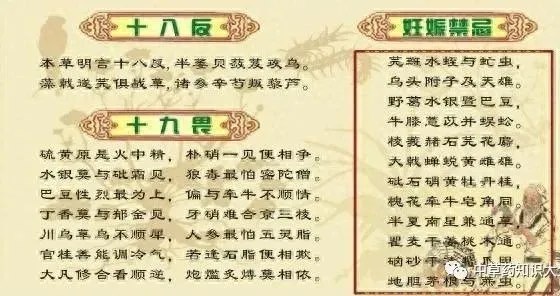 十八反
本草明言十八反，半蒌贝蔹芨攻乌。
藻戟遂芫俱战草，诸参辛芍叛藜芦。
十九畏
硫黄原是火中精，朴硝一见便相争。
水银莫与砒霜见，狼毒最怕密陀僧。
巴豆性烈最为上，偏与牵牛不顺情。
丁香莫与郁金见，牙硝难合京三棱。
川乌草乌不顺犀，人参最怕五灵脂。
官桂善能调冷气，若逢石脂便相欺。
大凡修合看顺逆，炮爁炙煿莫相依。
妊娠禁忌
芫斑水蛭与虻虫，
乌头附子及天雄。
野葛水银暨巴豆，
牛膝薏苡并蜈蚣。
棱莪赭石芫花麝，
大戟蝉蜕黄雌雄。
砒石硝黄牡丹桂，
槐花牵牛皂角同。
半夏南星兼通草，
瞿麦干姜桃木通。
硇砂干
地胆茅根
中草药知识大